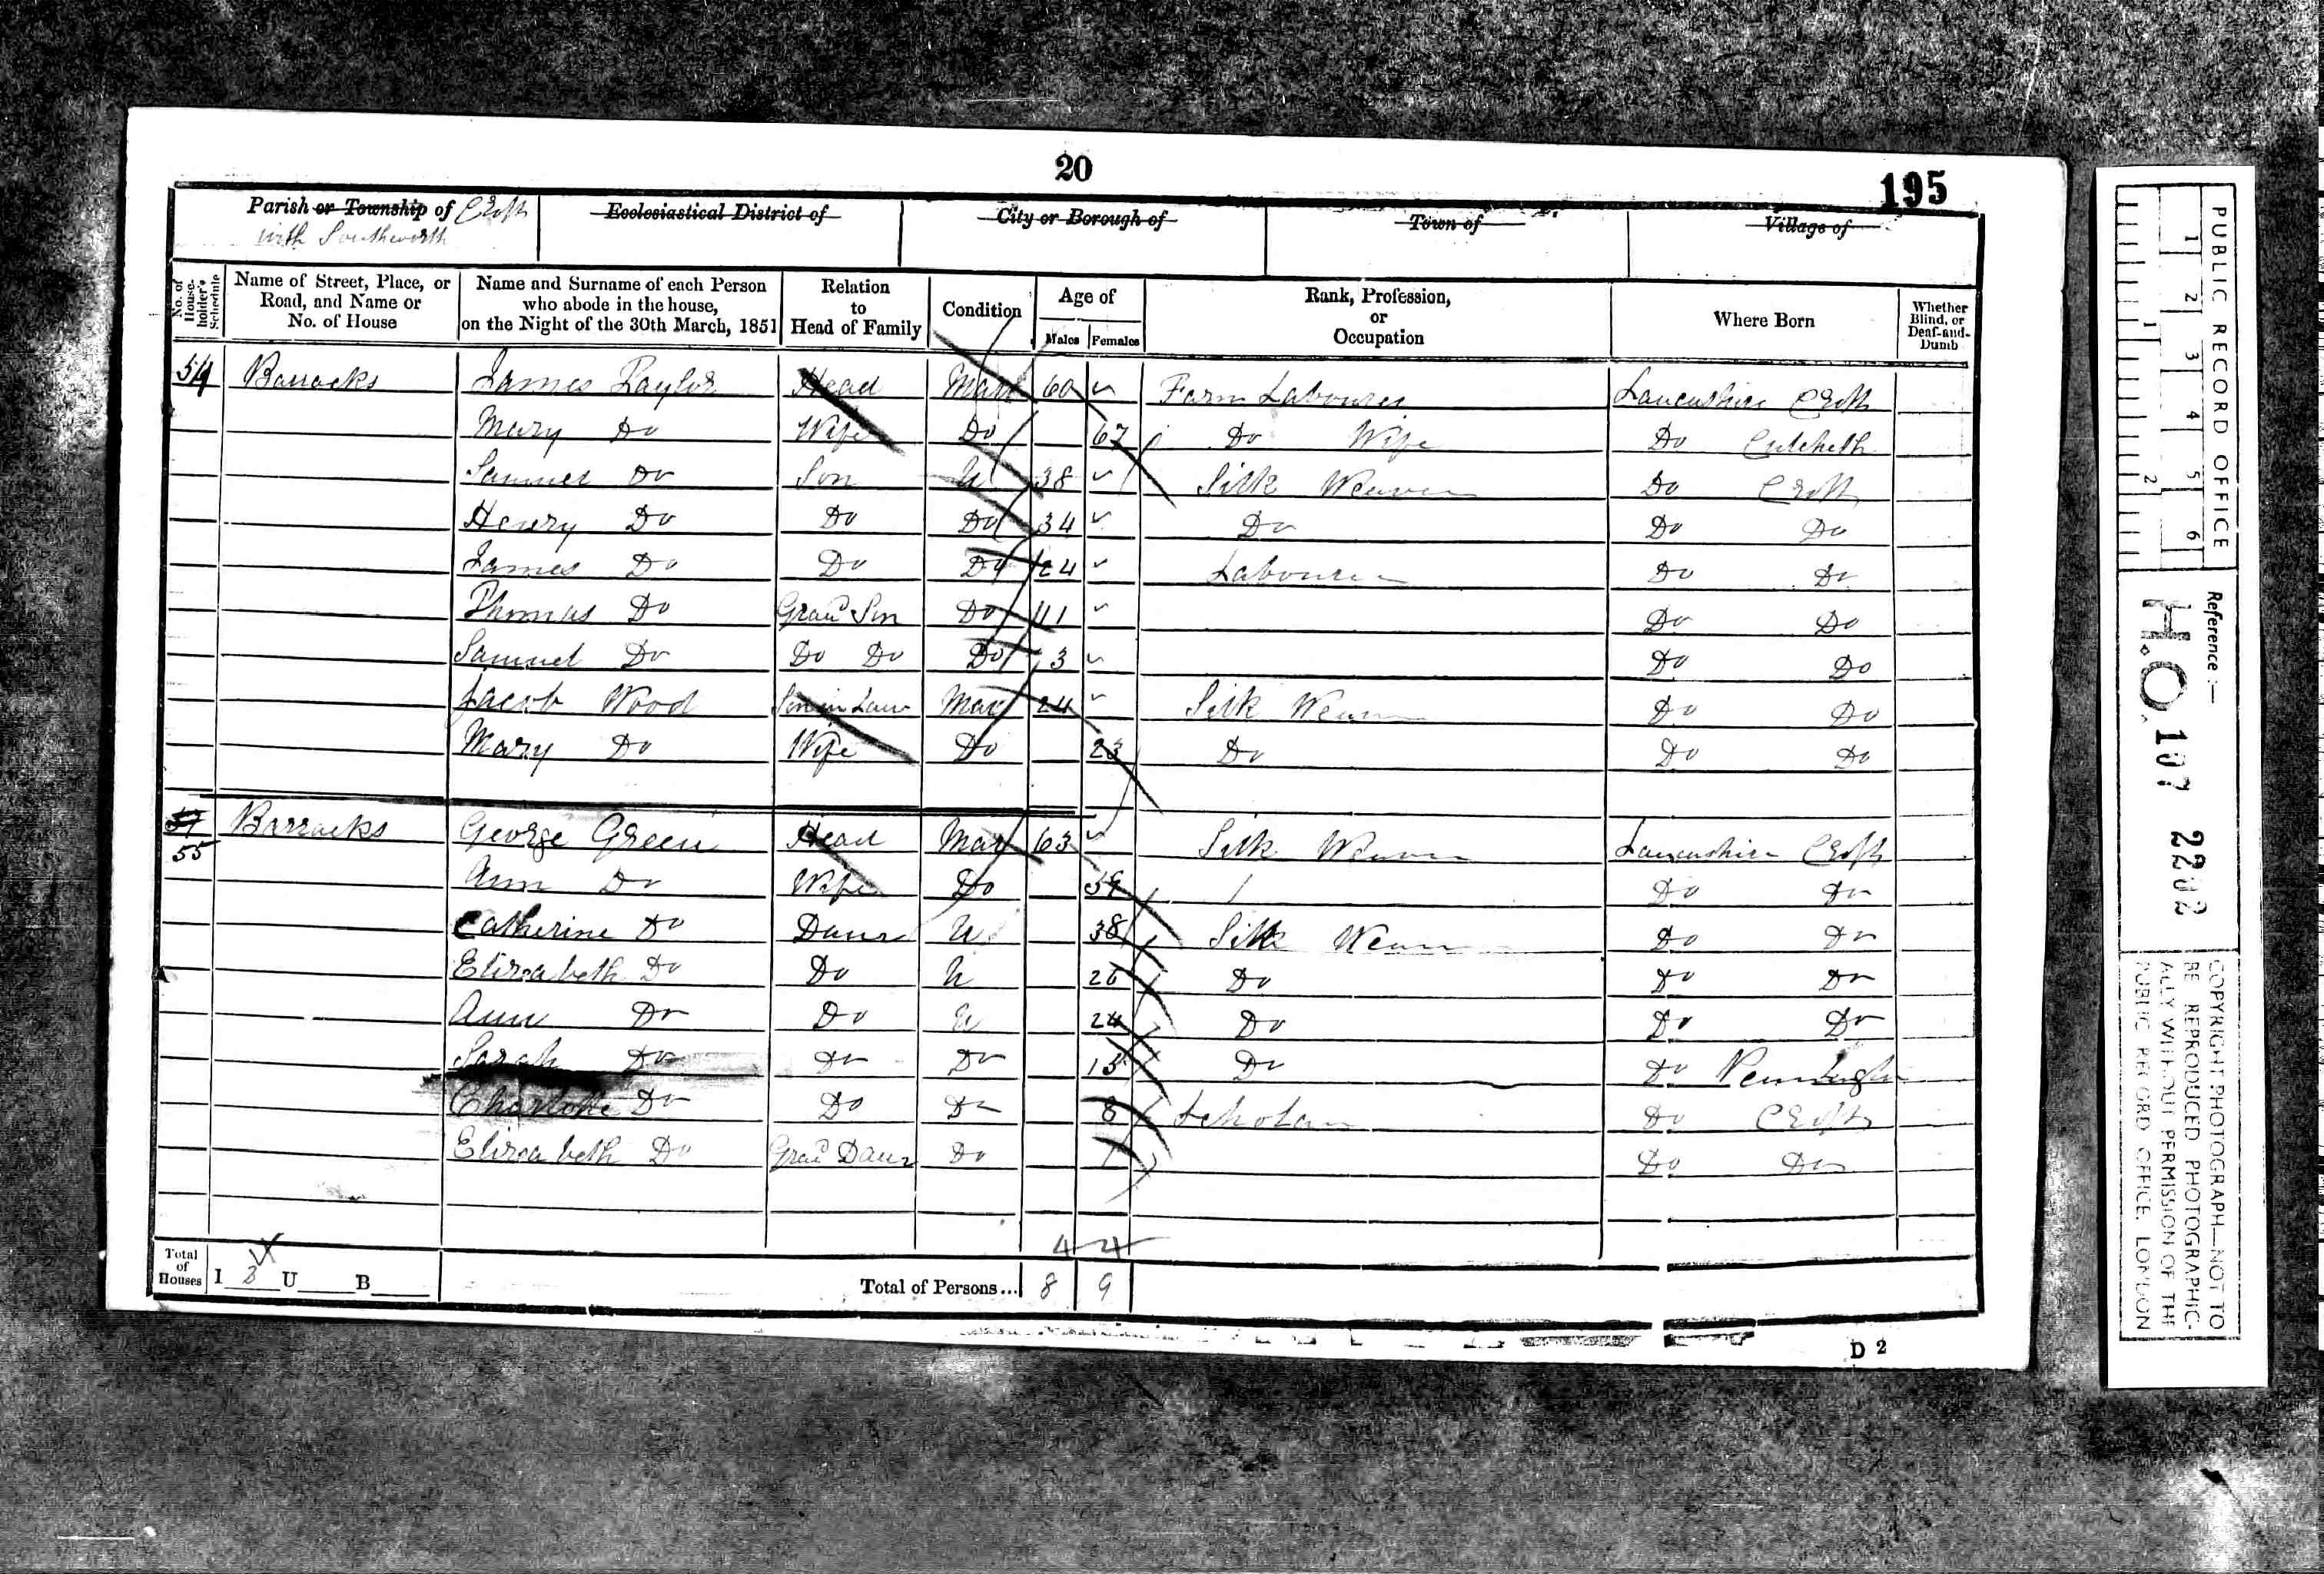 20
195
Parish or Township of Croft
with Southworth
Ecclesiastical District of
City or Borough of
Town of
Village of
No. of House-holder's Schedule
Name of Street, Place, or Road, and Name or No. of House
Name and Surname of each Person who abode in the house, on the Night of the 30th March, 1851
Relation to Head of Family
Condition
Age of
Males Females
Rank, Profession, or Occupation
Where Born
Whether Blind, or Deaf-and-Dumb
54 Barracks James Taylor Head Mar 60 Farm Labourer Lancashire Croft
Mary Do Wife Do 67 Do Wife Do Culcheth
Samuel Do Son U 38 Silk Weaver Do Croft
Henry Do Do Do 34 Do Do Do
James Do Do Do 24 Labourer Do Do
Thomas Do Grand Son Do 11 Do Do
Samuel Do Do Do Do 3 Do Do
Jacob Wood Son in Law Mar 24 Silk Weaver Do Do
Mary Do Wife Do 23 Do Do Do
55 Barracks George Green Head Mar 63 Silk Weaver Lancashire Croft
Ann Do Wife Do 59 Do Do
Catherine Do Daur U 38 Silk Weaver Do Do
Elizabeth Do Do U 26 Do Do Do
Ann Do Do U 24 Do Do Do
Sarah Do Do Do 15 Do Do Pennington
Charlotte Do Do Do 8 Scholar Do Croft
Elizabeth Do Grand Daur Do 1 Do Do
4 4
Total of Houses I U B Total of Persons... 8 9
D 2
PUBLIC RECORD OFFICE
1 2 3 4 5 6
1 2
Reference :—
H.O. 107 2202
COPYRIGHT PHOTOGRAPH—NOT TO
BE REPRODUCED PHOTOGRAPHIC-
ALLY WITHOUT PERMISSION OF THE
PUBLIC RECORD OFFICE, LONDON